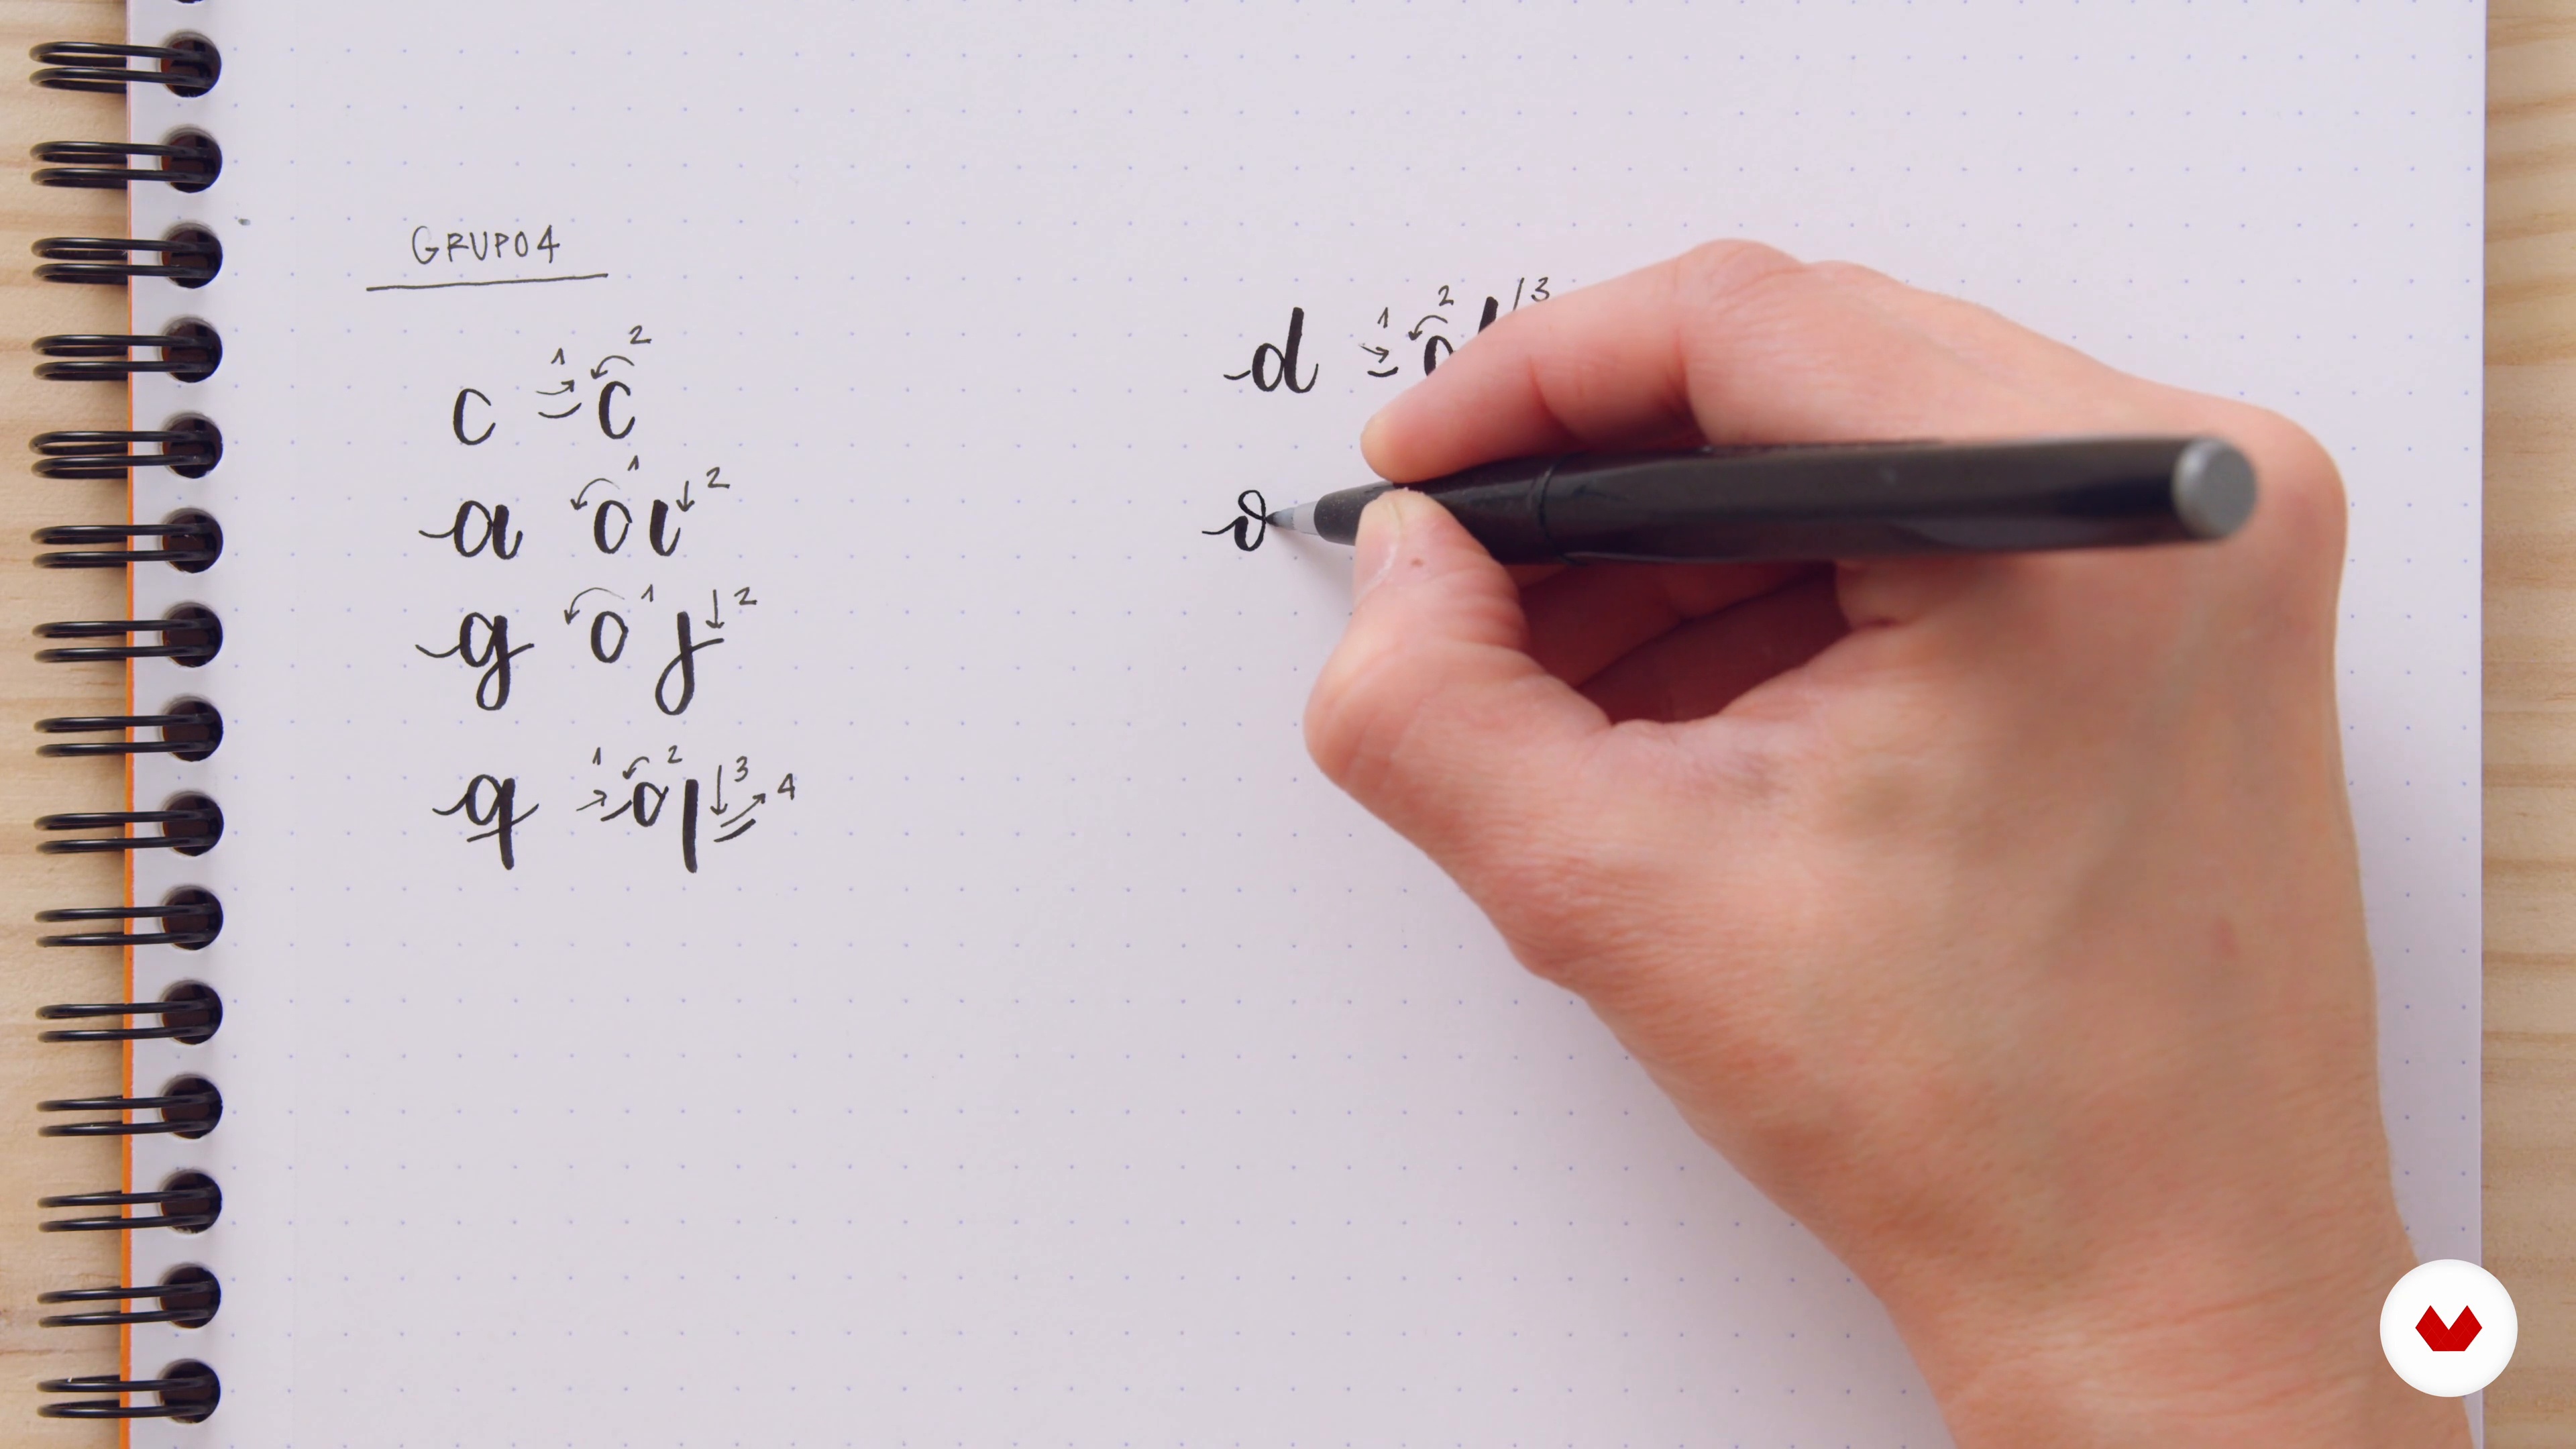 GRUPO4
c 1 2 c
a 1 o ı 2
g o 1 j 2
q 1 2 o l 3 4
d 1 2 o l 3
o